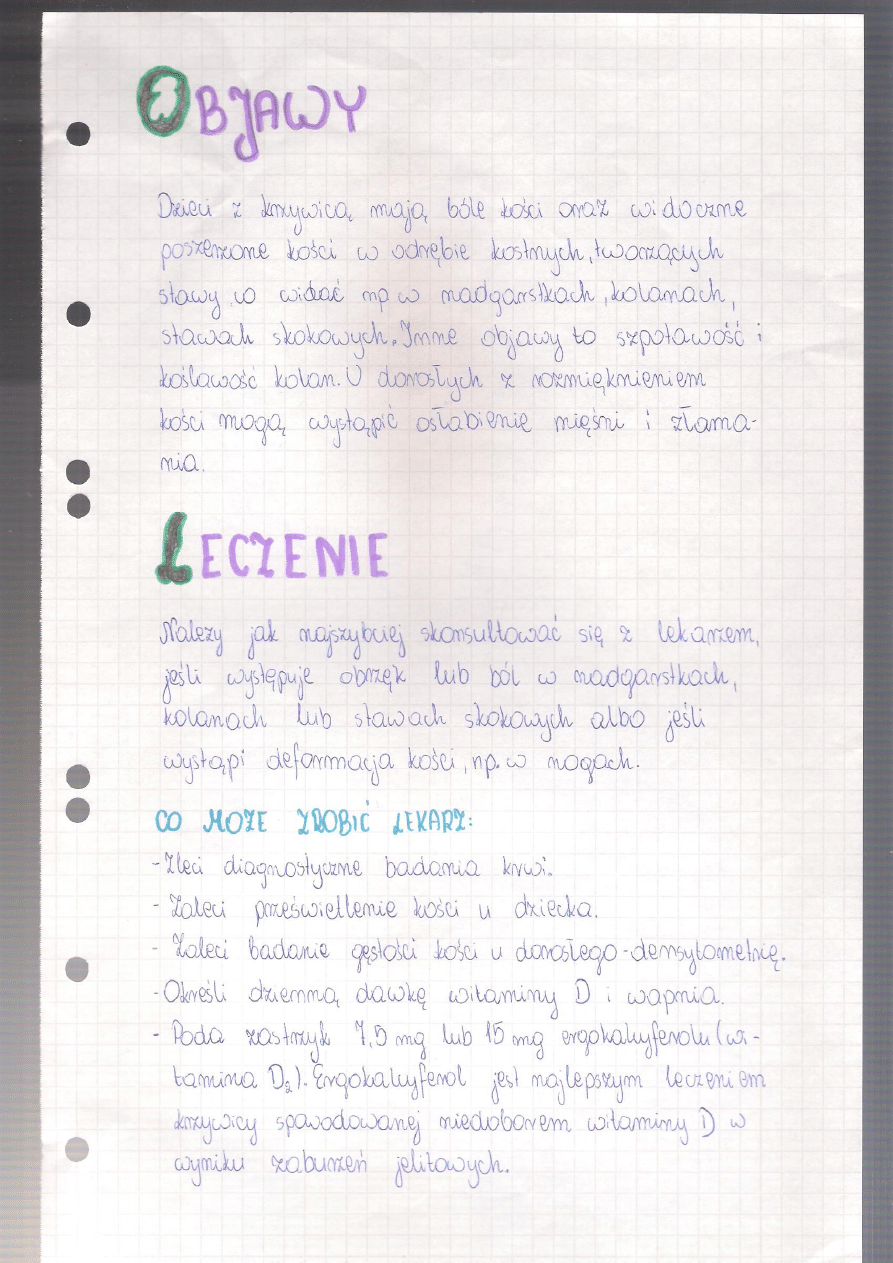 OBJAWY
Dzieci z krzywicą mają bóle kości oraz widoczne
poszerzone kości w odrębie kostnych, tworzących
stawy, co widać np w nadgarstkach, kolanach,
stawach skokowych. Inne objawy to szpotawość i
koślawość kolan. U dorosłych z rozmięknieniem
kości mogą wystąpić osłabienie mięśni i złama-
nia.
LECZENIE
Należy jak najszybciej skonsultować się z lekarzem,
jeśli występuje obrzęk lub ból w nadgarstkach,
kolanach lub stawach skokowych albo jeśli
wystąpi deformacja kości, np. w nogach.
CO MOŻE ZROBIĆ LEKARZ:
- Zleci diagnostyczne badania krwi.
- Zaleci prześwietlenie kości u dziecka.
- Zaleci badanie gęstości kości u dorosłego - densytometrię.
- Określi dzienną dawkę witaminy D i wapnia.
- Poda zastrzyk 7,5 mg lub 15 mg ergokalcyferolu (wi-
tamina D₂). Ergokalcyferol jest najlepszym leczeniem
krzywicy spowodowanej niedoborem witaminy D w
wyniku zaburzeń jelitowych.